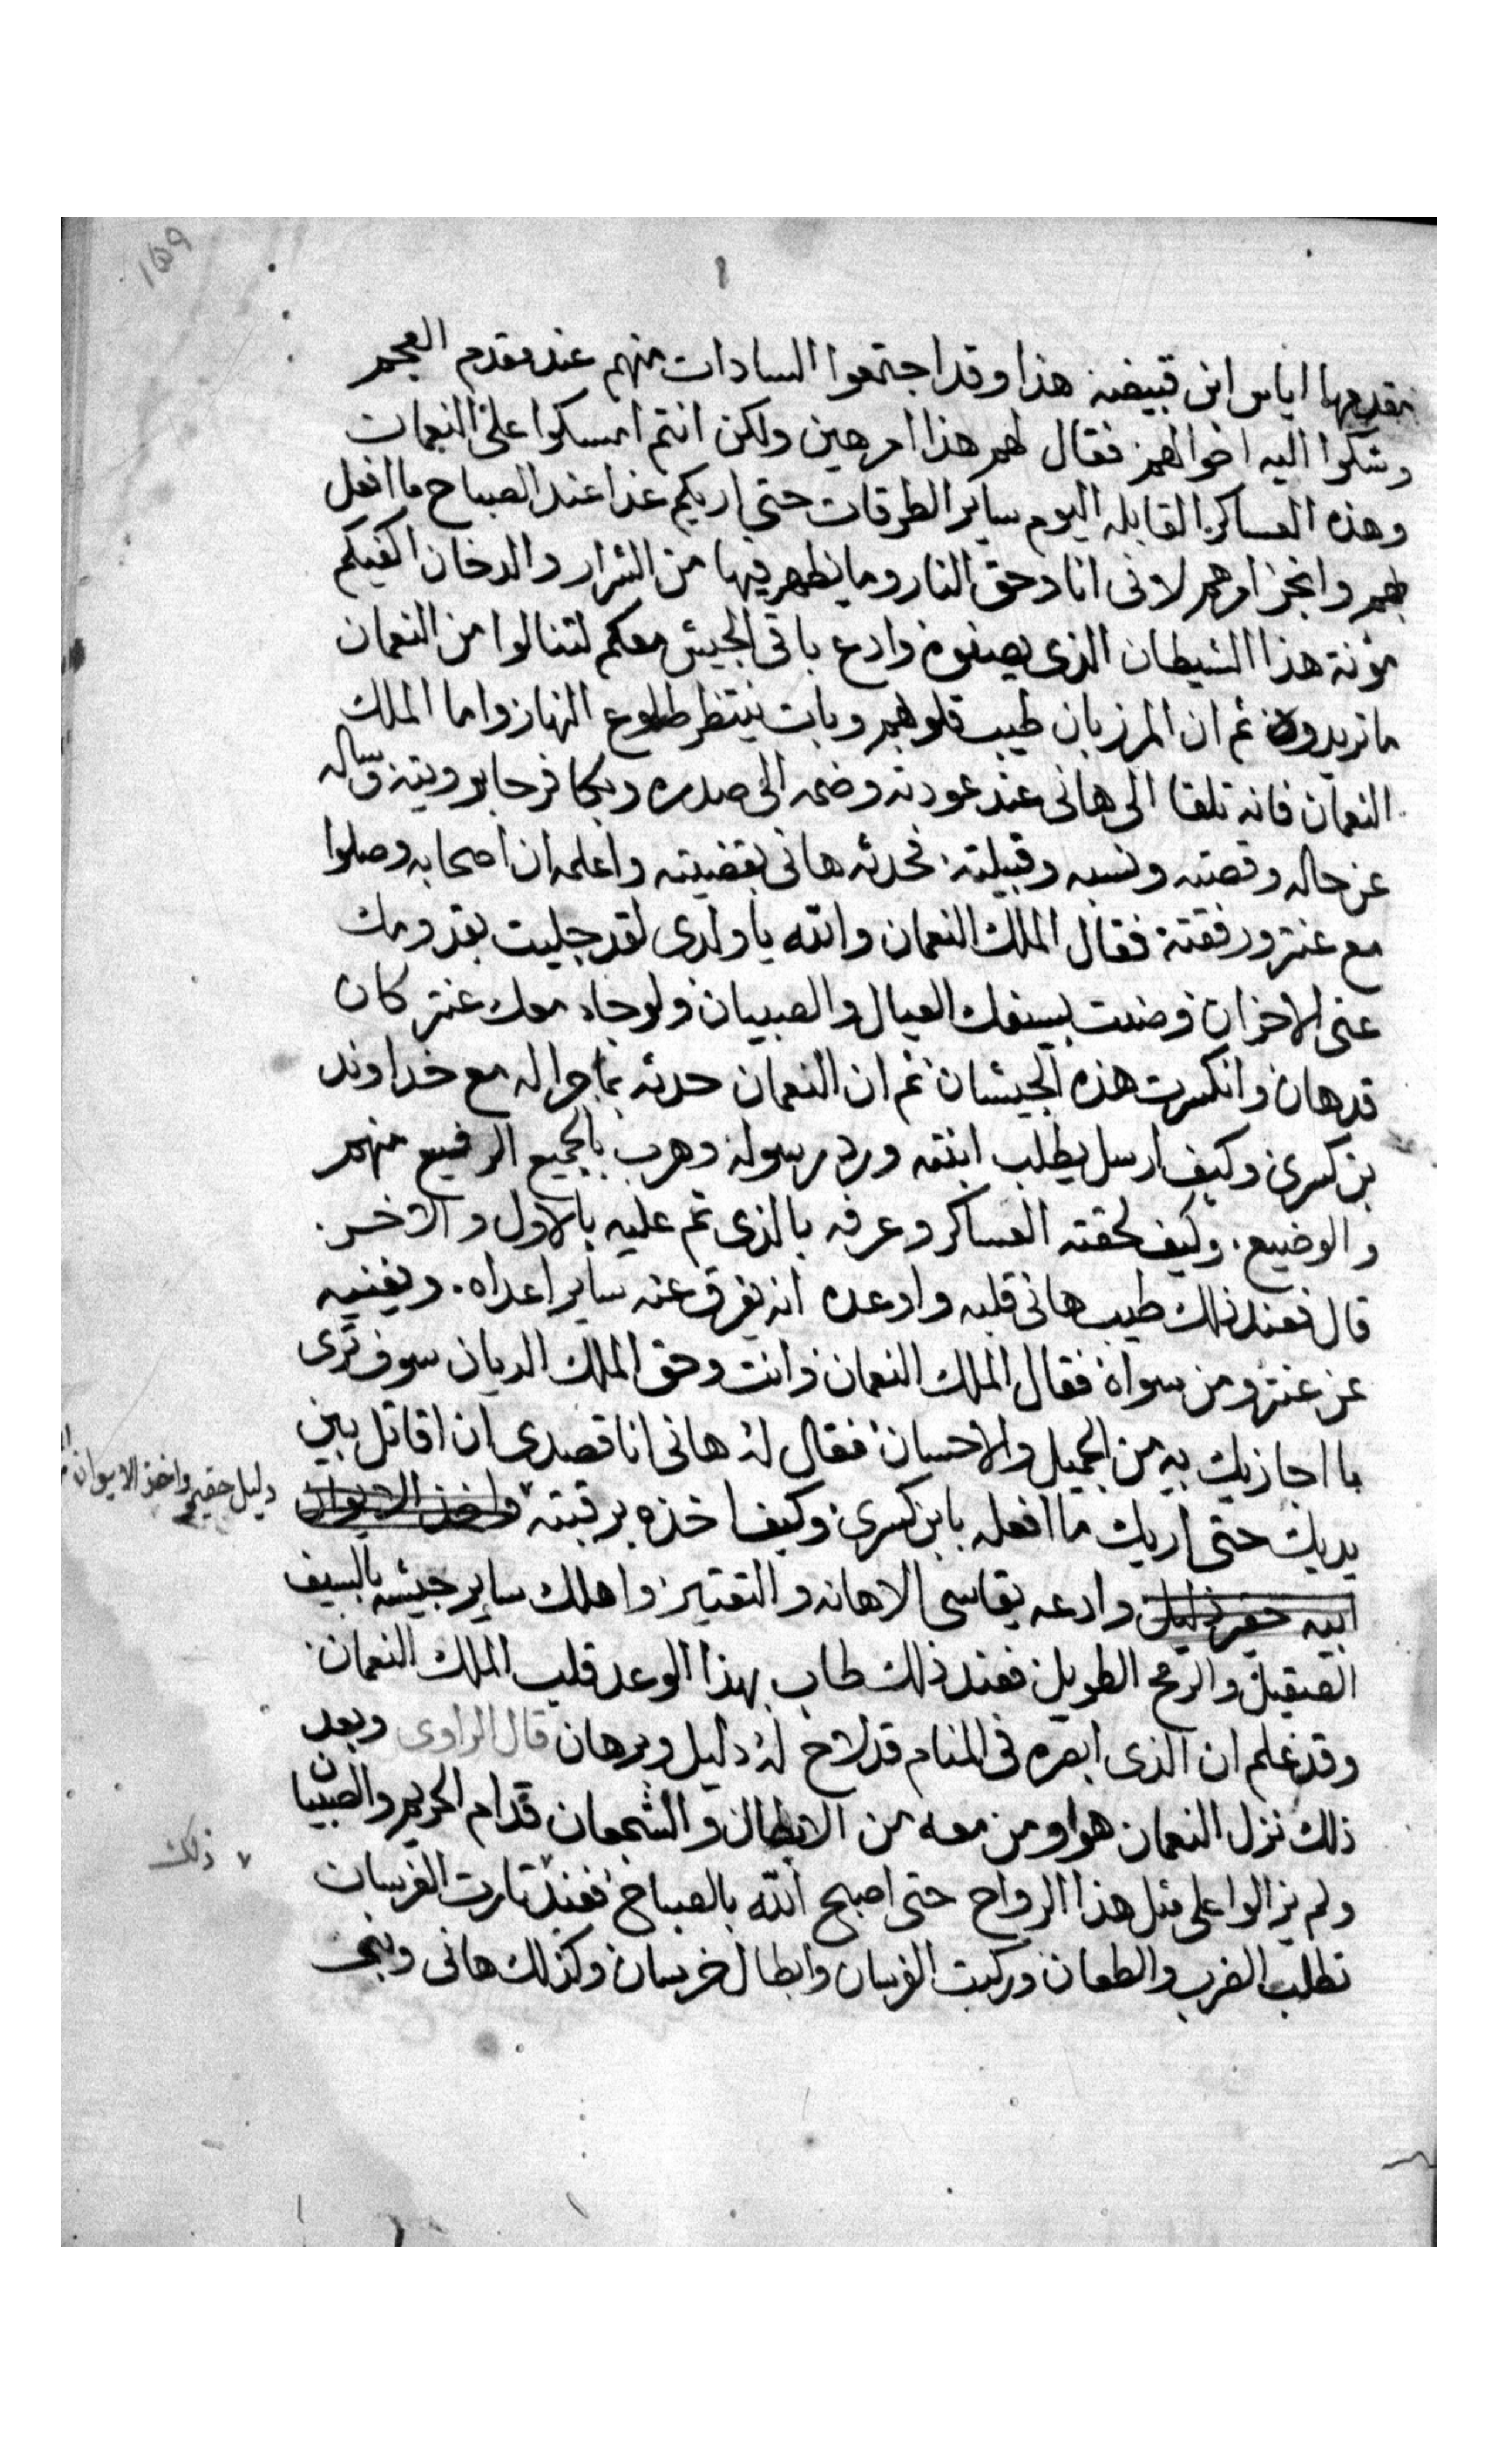 ١٥٩
يقدمها اياس ابن قبيضه هذا وقد اجتمعوا السادات منهم عند مقدم العجم
وشكوا اليه احوالهم فقال لهم هذا امر هين ولكن انتم امسكوا على النعمان
وهذه العساكر القابله اليوم ساير الطرقات حتى اريكم غدا عند الصباح ما افعل
بهم وانجز امرهم لانى انا وحق النار وما يظهر فيها من الشرار والدخان اكفيكم
مؤنة هذا الشيطان الذى يصفوه وادع باقى الجيش معكم لتنالوا من النعمان
ما تريدون ثم ان المرزبان طيب قلوبهم وبات ينتظر طلوع النهار واما الملك
النعمان فانه تلقا الى هانى عند عودته وضمه الى صدره وبكا فرحا برويته وساله
عن حاله وقصته ونسبه وقبيلته فحدثه هانى بقضيته واعلمه ان اصحابه وصلوا
مع عنتر ورفقته فقال الملك النعمان والله يا ولدى لقد جليت بقدومك
عنى الاحزان وصنت بسيفك العيال والصبيان ولو جاء معك عنتر كان
قد هان وانكسرت هذه الجيشان ثم ان النعمان حدثه بما جرا له مع خداوند
بن كسرى وكيف ارسل يطلب ابنته ورد رسوله وهرب بالجميع الرفيع منهم
والوضيع وكيف لحقته العساكر وعرفه بالذى تم عليه بالاول والاخر
قال فعند ذلك طيب هانى قلبه واوعده انه يفرق عنه ساير اعداه ويغنيه
عن عنتر ومن سواه فقال الملك النعمان وانت وحق الملك الديان سوف ترى
ما اجازيك به من الجميل والاحسان فقال له هانى انا قصدى ان اقاتل بين
يديك حتى اريك ما افعله بابن كسرى وكيف اخذه برقبته واخذ الايوان
ابيه حقير ذليل وادعه يقاسى الاهانه والتعتير واهلك ساير جيشه بالسيف
دليل حقير واخذ الايوان
الصقيل والرمح الطويل فعند ذلك طاب بهذا الوعد قلب الملك النعمان
وقد علم ان الذى ابصره فى المنام قد لاح له دليل وبرهان قال الراوى وبعد
ذلك نزل النعمان هو ومن معه من الابطال والشجعان قدام الحريم والصبيان
ولم يزالوا على مثل هذا الرواح حتى اصبح الله بالصباح فعند ثارت الفرسان
ذلك
تطلب الضرب والطعان وركبت الفرسان وابطال خرسان وكذلك هانى وبنى